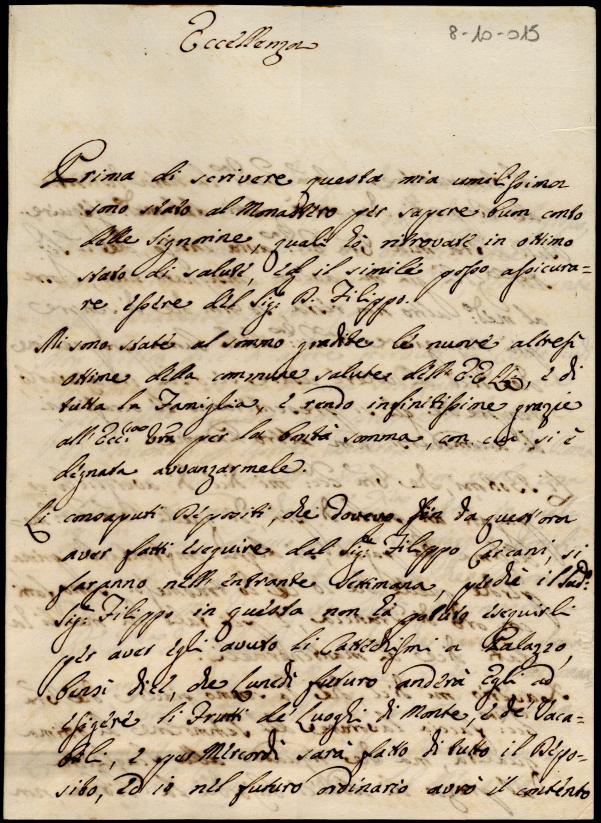 Eccellenza
8-10-015
Prima di scrivere questa mia umilissima
sono stato al Monastero per sapere buon conto
delle Signorine quali hò ritrovate in ottimo
stato di salute, ed il simile posso assicura=
re essere del Sig.r D. Filippo.
Mi sono state al sommo gradite le nuove altresì
ottime della commune salute dell' EE. LL., e di
tutta la Famiglia, e rendo infinitissime grazie
all' Ecc. Vra per la bontà somma, con cui si è
degnata avvanzarmele.
Li consaputi Depositi, che dovevo fin da quest'ora
aver fatti eseguire dal Sig.r Filippo Caccani, si
faranno nell' entrante Settimana, perchè il sud.o
Sig.r Filippo in questa non hà potuto eseguirli
per aver egli avuto li Catechismi a Palazzo,
bensì dice, che Lunedì futuro anderà Egli ad
esigere li Frutti de Luoghi di Monte, e de Vaca=
bili, e per Mercordì sarà fatto di tutto il Depo=
sito, ed io nel futuro ordinario avrò il contento